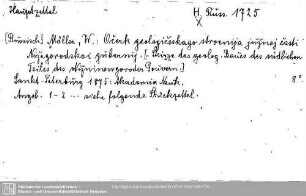 Hauptzettel
H. Russ. 1725
[Russisch] Möller, V.: Očerk geologičeskago stroenija južnoj časti
Nižegorodskoj gubernij. [= Skizze des geolog. Baues des südlichen
Teiles des Nijninowgoroder Gouvern.]
Sankt-Peterburg 1875: Akademia Nauk. 8°
Angeb. 1-2 ... siehe folgende Stückzettel.
Sächsische Landesbibliothek –
Staats- und Universitätsbibliothek Dresden